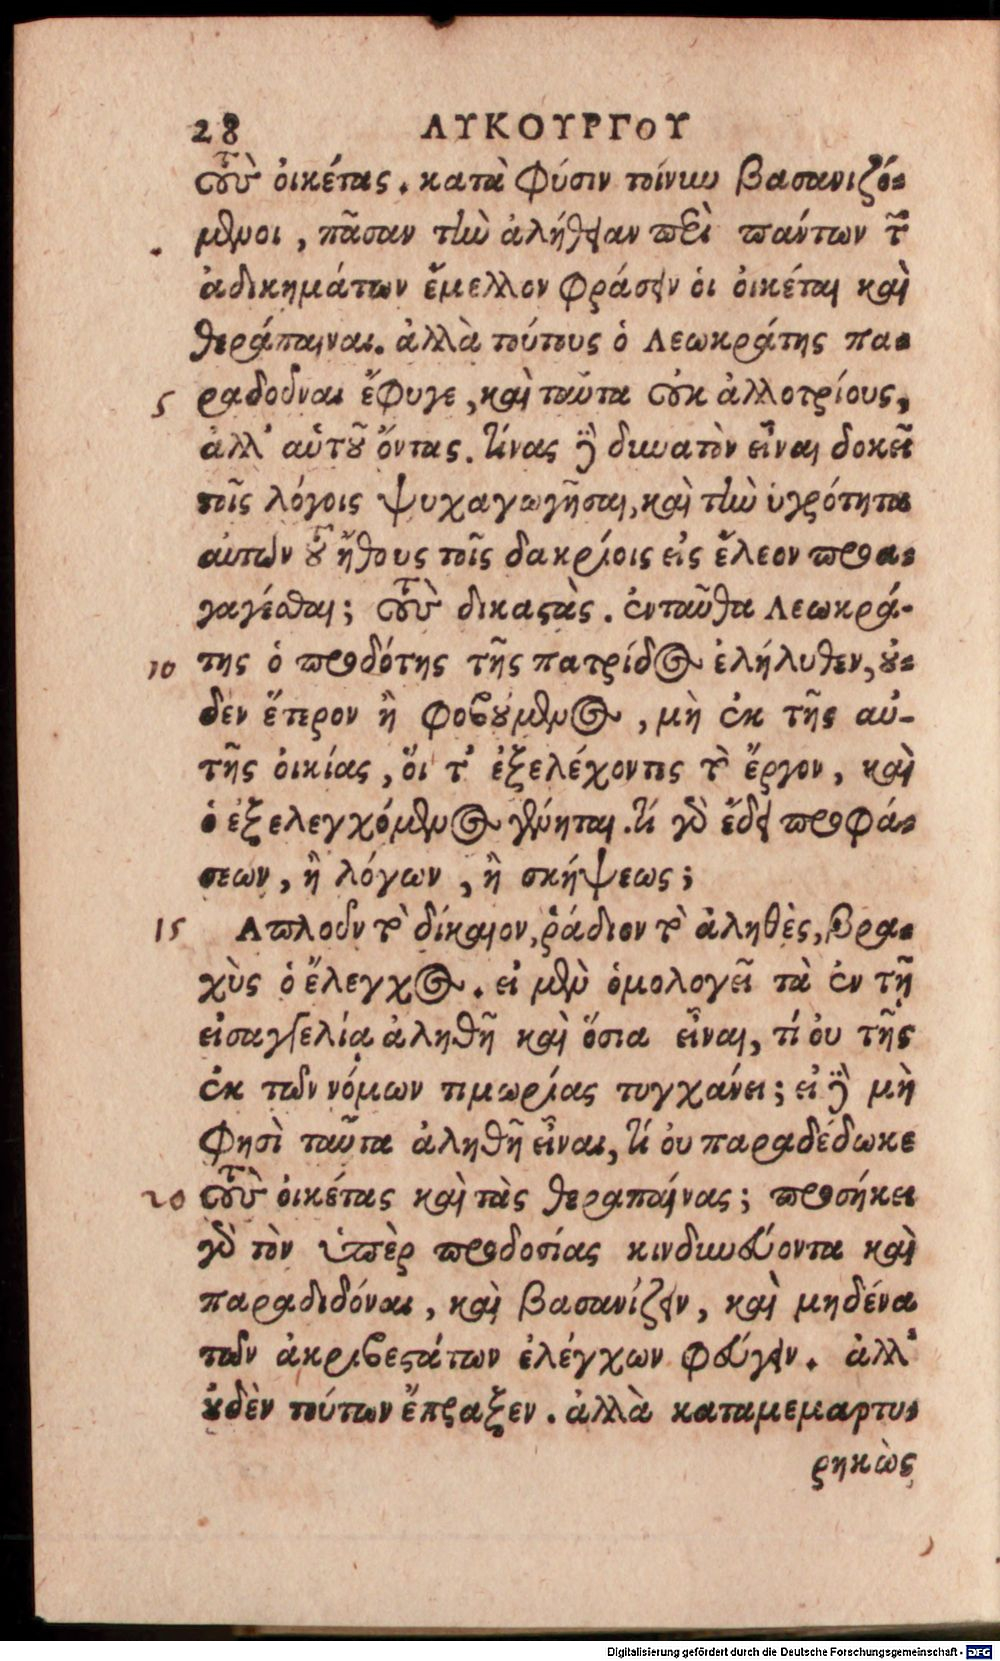 28 ΛΥΚΟΥΡΓΟΥ
τοὺς οἰκέτας. κατὰ φύσιν τοίνυν βασανιζό-
μενοι, πᾶσαν τὴν ἀλήθειαν περὶ πάντων τῶν
ἀδικημάτων ἔμελλον φράσειν οἱ οἰκέται καὶ
θεράπαιναι. ἀλλὰ τούτους ὁ Λεωκράτης πα-
5 ραδοῦναι ἔφυγε, καὶ ταῦτα οὐκ ἀλλοτρίους,
ἀλλ' αὑτοῦ ὄντας. τίνας δὲ δυνατὸν εἶναι δοκεῖ
τοῖς λόγοις ψυχαγωγῆσαι, καὶ τὴν ὑγρότητα
αὐτῶν τοῦ ἤθους τοῖς δακρίοις εἰς ἔλεον προα-
γαγέσθαι; τοὺς δικαστάς. ἐνταῦθα Λεωκρά-
10 της ὁ προδότης τῆς πατρίδος ἐλήλυθεν, οὐ-
δεν ἕτερον ἢ φοβούμενος, μὴ ἐκ τῆς αὐ-
τῆς οἰκίας, οἵ τ' ἐξελέχοντες τὸ ἔργον, καὶ
ὁ ἐξελεγχόμενος γένηται. τί γὰρ ἔδει προφά-
σεων, ἢ λόγων, ἢ σκήψεως;
15 Απλοῦν τὸ δίκαιον, ῥάδιον τὸ ἀληθὲς, βρα-
χὺς ὁ ἔλεγχος. εἰ μὲν ὁμολογεῖ τὰ ἐν τῇ
εἰσαγγελίᾳ ἀληθῆ καὶ ὅσια εἶναι, τί οὐ τῆς
ἐκ τῶν νόμων τιμωρίας τυγχάνει; εἰ δὲ μὴ
φησὶ ταῦτα ἀληθῆ εἶναι, τί οὐ παραδέδωκε
20 τοὺς οἰκέτας καὶ τὰς θεραπαίνας; προσήκει
γὰρ τὸν ὑπὲρ προδοσίας κινδυνεύοντα καὶ
παραδιδόναι, καὶ βασανίζειν, καὶ μηδένα
τῶν ἀκριβεστάτων ἐλέγχων φεύγειν. ἀλλ'
οὐδὲν τούτων ἔπραξεν. ἀλλὰ καταμεμαρτυ-
ρηκὼς
Digitalisierung gefördert durch die Deutsche Forschungsgemeinschaft - DFG